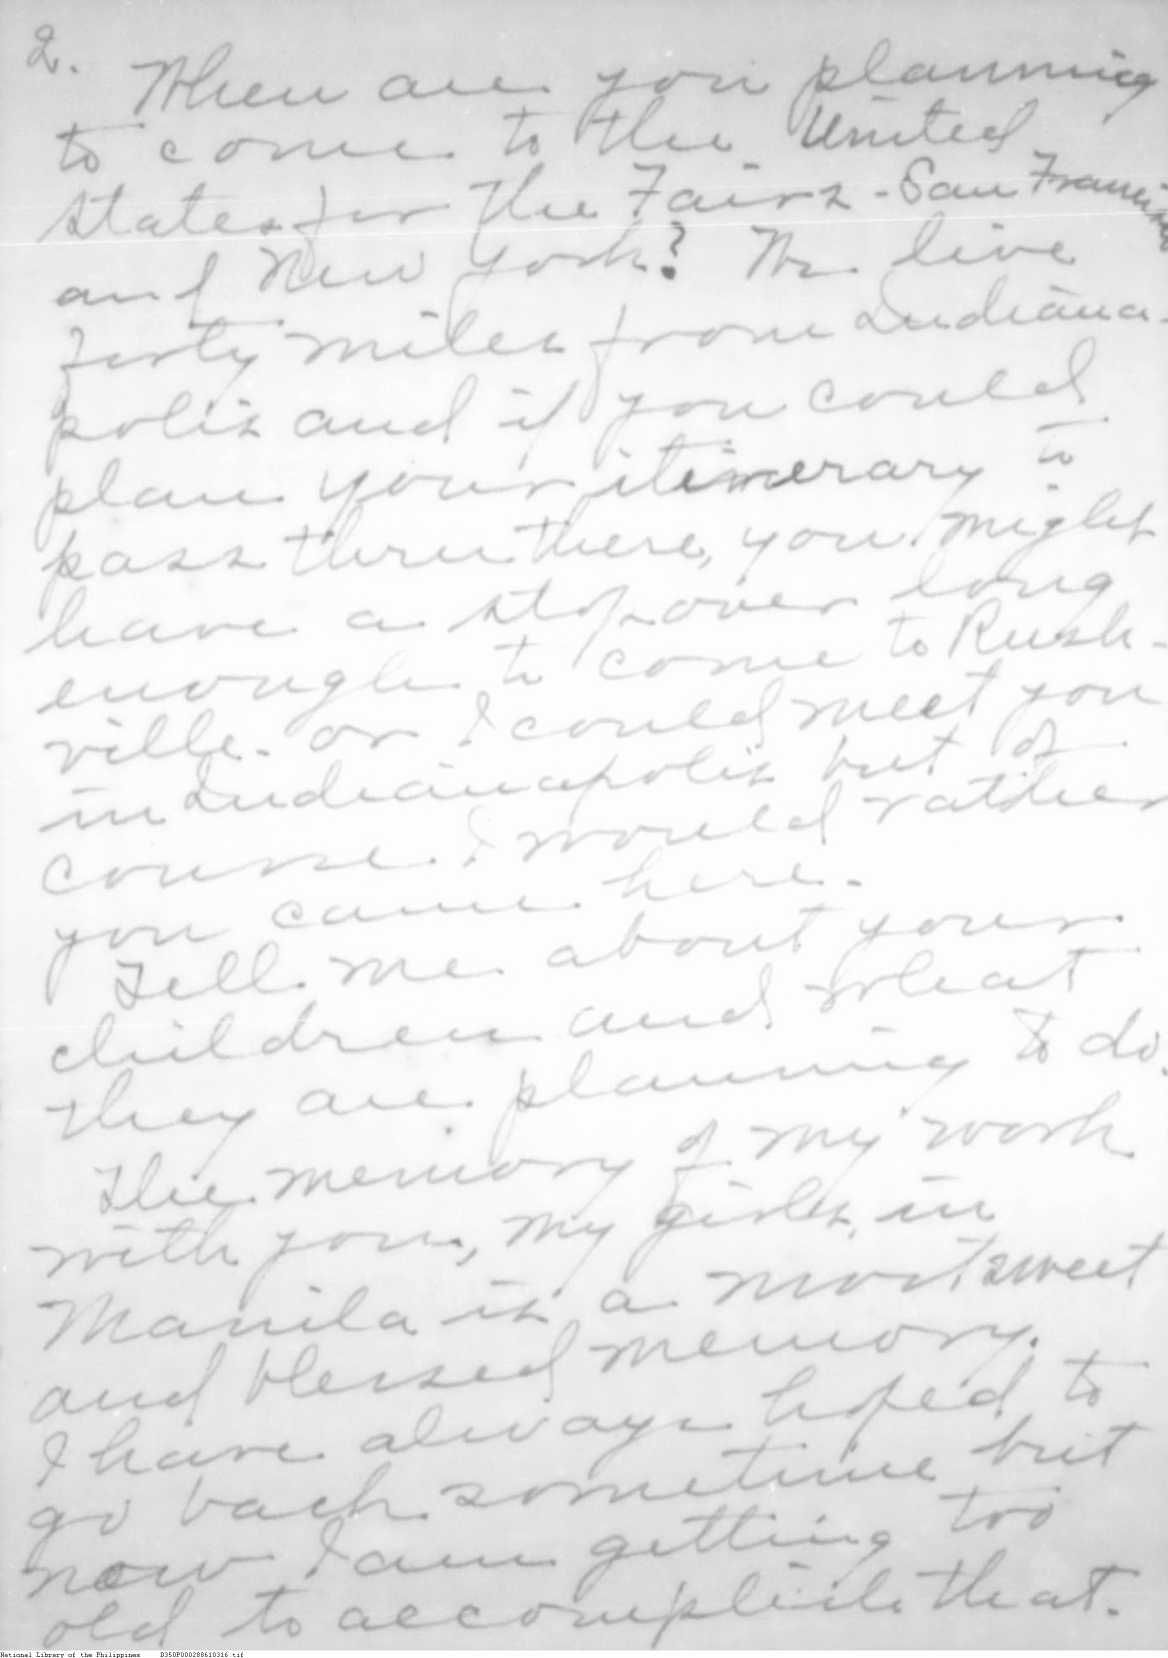 2.
When are you planning
to come to the United
States for the Fairs - San Francisco
and New York? We live
forty miles from Indiana-
polis and if you could
plan your itinerary to
pass thru there, you might
have a stop over long
enough to come to Rush-
ville - or I could meet you
in Indianapolis but of
course I would rather
you came here.
Tell me about your
children and what
they are planning to do.
The memory of my work
with you, my girls, in
Manila is a most sweet
and blessed memory.
I have always hoped to
go back sometime but
now I am getting too
old to accomplish that.
National Library of the Philippines D350P000288610316.tif